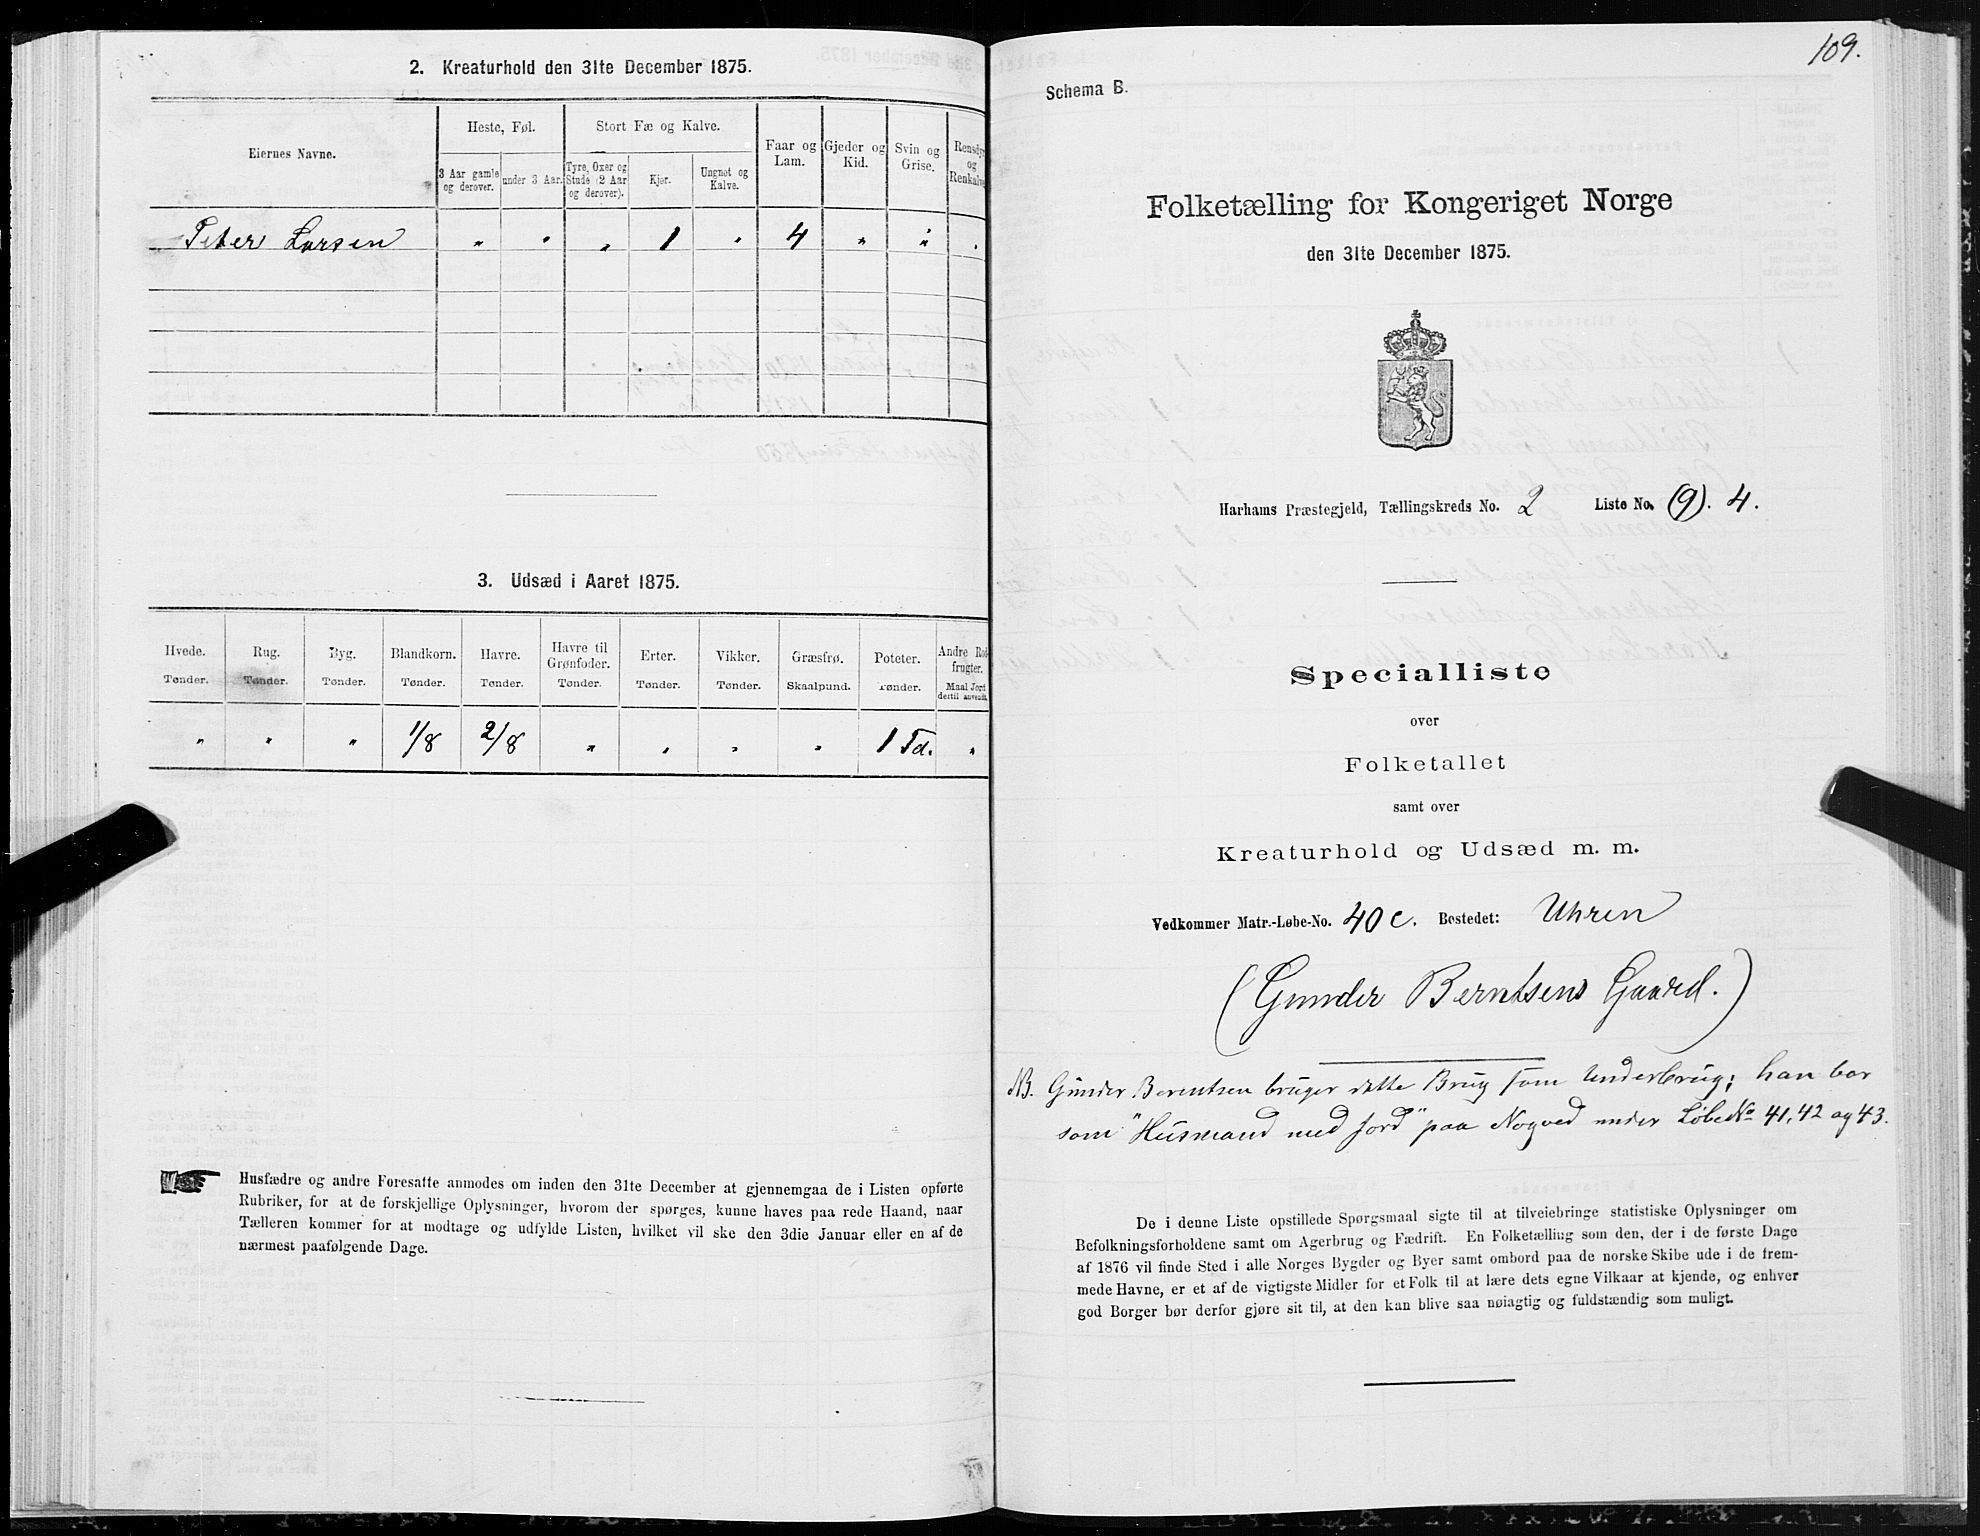 2. Kreaturhold den 31te December 1875.
Eiernes Navne.
Heste, Føl.
Stort Fæ og Kalve.
Faar og Lam.
Gjeder og Kid.
Svin og Grise.
Rensdyr og Renkalve
3 Aar gamle og derover.
under 3 Aar.
Tyre, Oxer og Stude (2 Aar og derover).
Kjør.
Ungnøt og Kalve.
Peter Larsen " " " 1 " 4 " " "
3. Udsæd i Aaret 1875.
Hvede. Rug. Byg. Blandkorn. Havre. Havre til Grønfoder. Erter. Vikker. Græsfrø. Poteter. Andre Rodfrugter.
Tønder. Tønder. Tønder. Tønder. Tønder. Tønder. Tønder. Tønder. Skaalpund. Tønder. Maal Jord dertil anvendt.
" " " 1/8 2/8 " " " " 1 Td. "
Husfædre og andre Foresatte anmodes om inden den 31te December at gjennemgaa de i Listen opførte
Rubriker, for at de forskjellige Oplysninger, hvorom der spørges, kunne haves paa rede Haand, naar
Tælleren kommer for at modtage og udfylde Listen, hvilket vil ske den 3die Januar eller en af de
nærmest paafølgende Dage.
109.
Schema B.
Folketælling for Kongeriget Norge
den 31te December 1875.
Harhams Præstegjeld, Tællingskreds No. 2 Liste No. (9). 4.
Specialliste
over
Folketallet
samt over
Kreaturhold og Udsæd m. m.
Vedkommer Matr.-Løbe-No. 40 c. Bostedet: Uhren
(Gunder Berntsens Gaard.)
NB. Gunder Berentsen bruger dette Brug som Underbrug; han bor
som "Husmand med Jord" paa Nogved under LøbeNo 41, 42 og 43.
De i denne Liste opstillede Spørgsmaal sigte til at tilveiebringe statistiske Oplysninger om
Befolkningsforholdene samt om Agerbrug og Fædrift. En Folketælling som den, der i de første Dage
af 1876 vil finde Sted i alle Norges Bygder og Byer samt ombord paa de norske Skibe ude i de frem-
mede Havne, er et af de vigtigste Midler for et Folk til at lære dets egne Vilkaar at kjende, og enhver
god Borger bør derfor gjøre sit til, at den kan blive saa nøiagtig og fuldstændig som muligt.